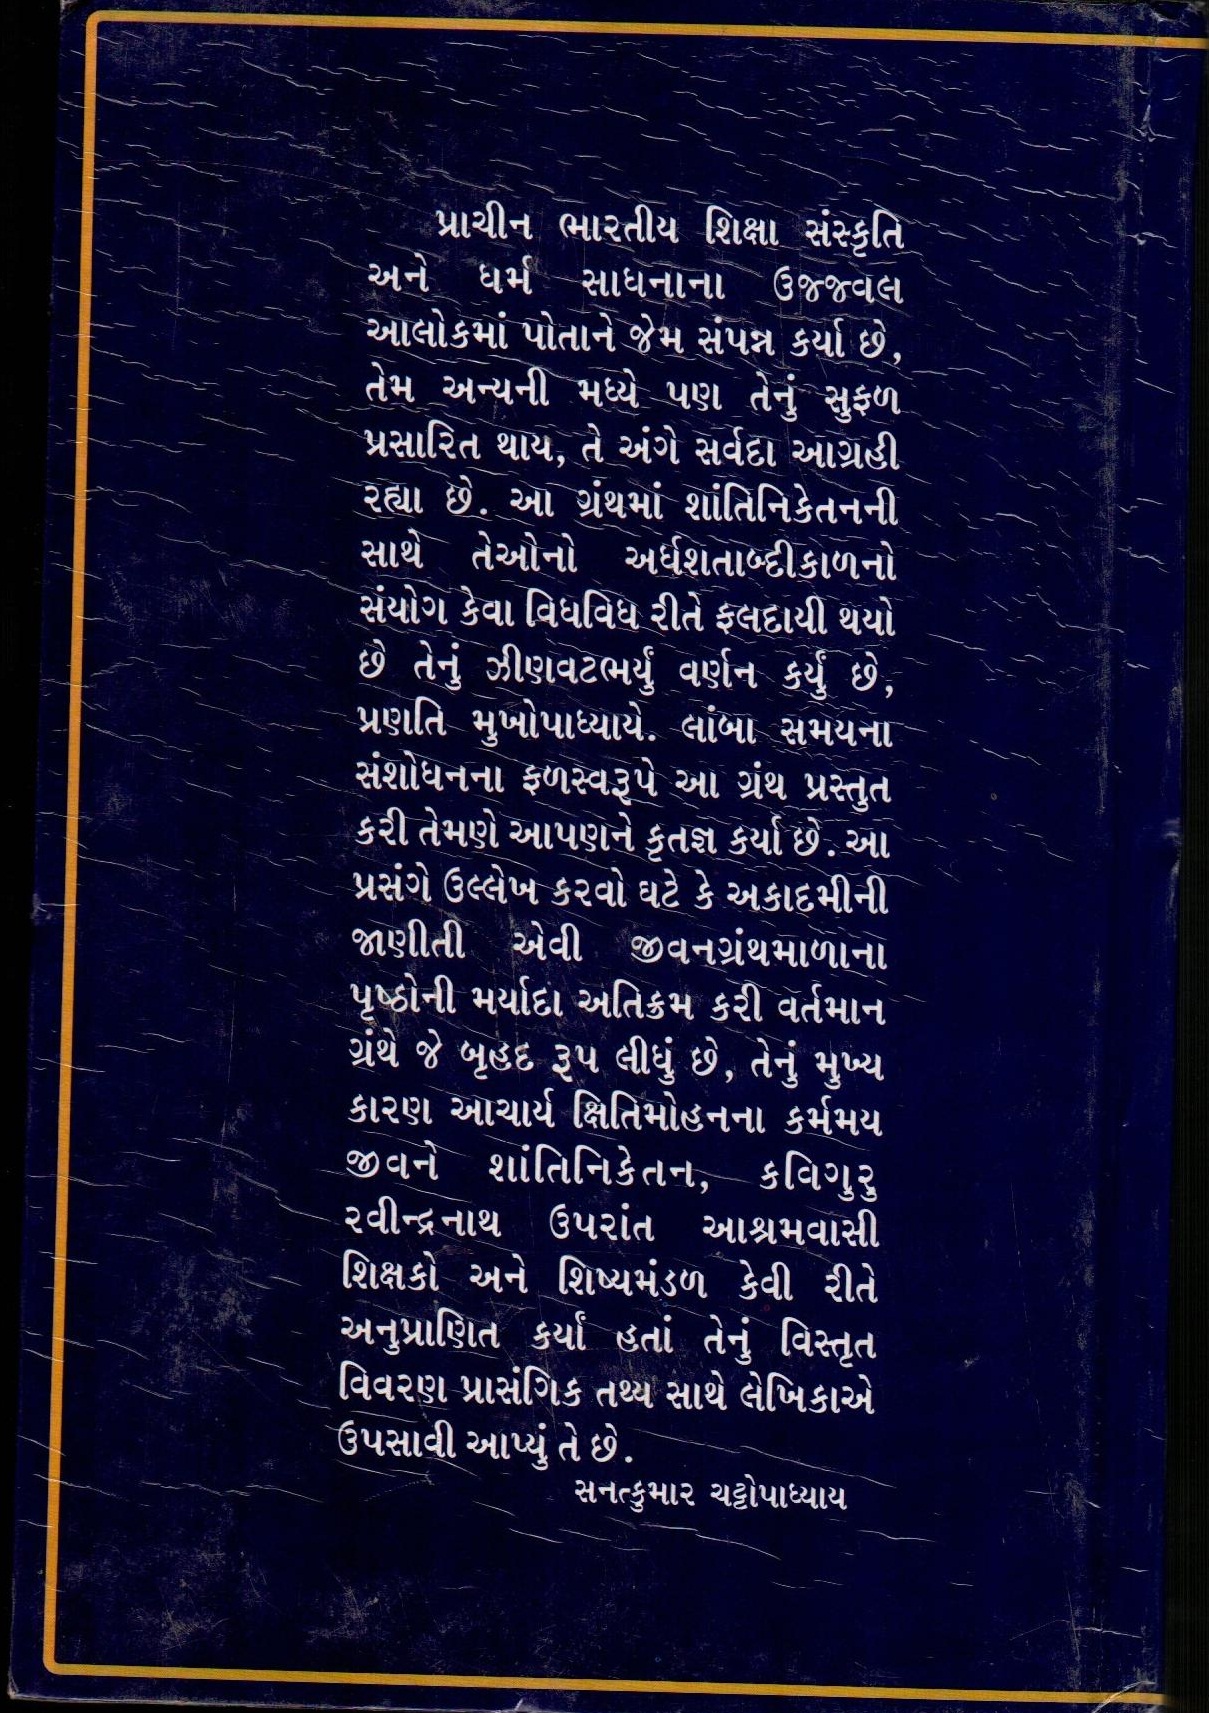 પ્રાચીન ભારતીય શિક્ષા સંસ્કૃતિ
અને ધર્મ સાધનાના ઉજ્જવલ
આલોકમાં પોતાને જેમ સંપન્ન કર્યા છે,
તેમ અન્યની મધ્યે પણ તેનું સુફળ
પ્રસારિત થાય, તે અંગે સર્વદા આગ્રહી
રહ્યા છે. આ ગ્રંથમાં શાંતિનિકેતનની
સાથે તેઓનો અર્ધશતાબ્દીકાળનો
સંયોગ કેવા વિધવિધ રીતે ફલદાયી થયો
છે તેનું ઝીણવટભર્યું વર્ણન કર્યું છે,
પ્રણતિ મુખોપાધ્યાયે. લાંબા સમયના
સંશોધનના ફળસ્વરૂપે આ ગ્રંથ પ્રસ્તુત
કરી તેમણે આપણને કૃતજ્ઞ કર્યા છે. આ
પ્રસંગે ઉલ્લેખ કરવો ઘટે કે અકાદમીની
જાણીતી એવી જીવનગ્રંથમાળાના
પૃષ્ઠોની મર્યાદા અતિક્રમ કરી વર્તમાન
ગ્રંથે જે બૃહદ રૂપ લીધું છે, તેનું મુખ્ય
કારણ આચાર્ય ક્ષિતિમોહનના કર્મમય
જીવને શાંતિનિકેતન, કવિગુરુ
રવીન્દ્રનાથ ઉપરાંત આશ્રમવાસી
શિક્ષકો અને શિષ્યમંડળ કેવી રીતે
અનુપ્રાણિત કર્યાં હતાં તેનું વિસ્તૃત
વિવરણ પ્રાસંગિક તથ્ય સાથે લેખિકાએ
ઉપસાવી આપ્યું તે છે.
સનત્કુમાર ચટ્ટોપાધ્યાય